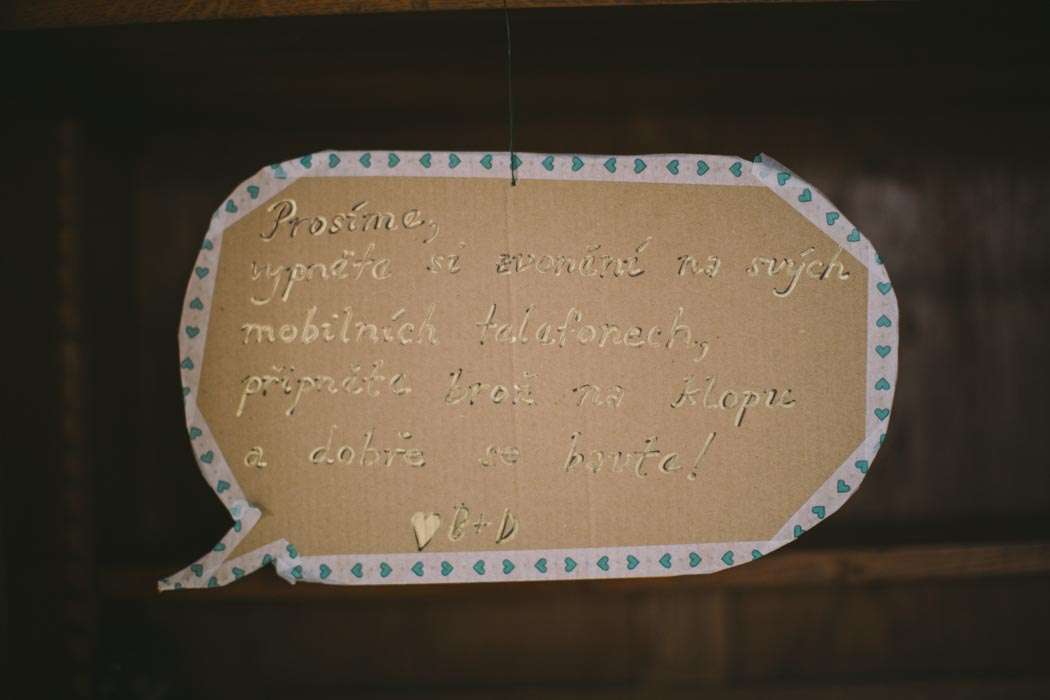 Prosíme,
vypněte si zvonění na svých
mobilních telefonech,
připněte brož na klopu
a dobře se bavte!
♥B+D